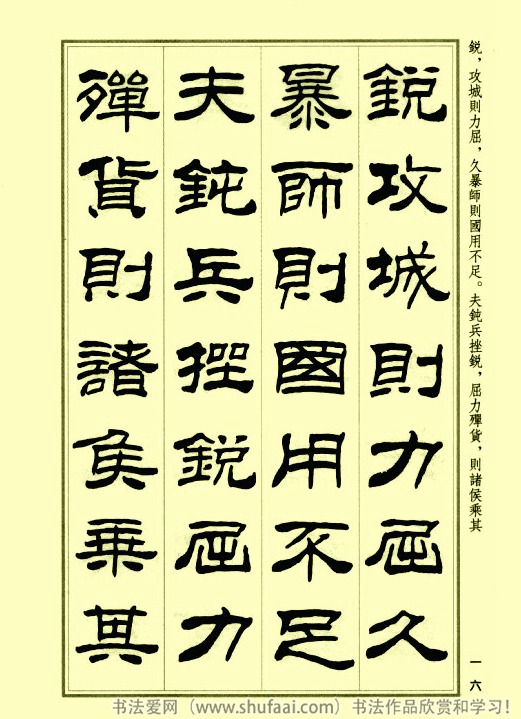 鋭，攻城則力屈，久暴師則國用不足。夫鈍兵挫鋭，屈力殫貨，則諸侯乘其
鋭攻城則力屈久
暴師則國用不足
夫鈍兵挫鋭屈力
殫貨則諸侯乘其
一六
书法爱网（www.shufaai.com）书法作品欣赏和学习！